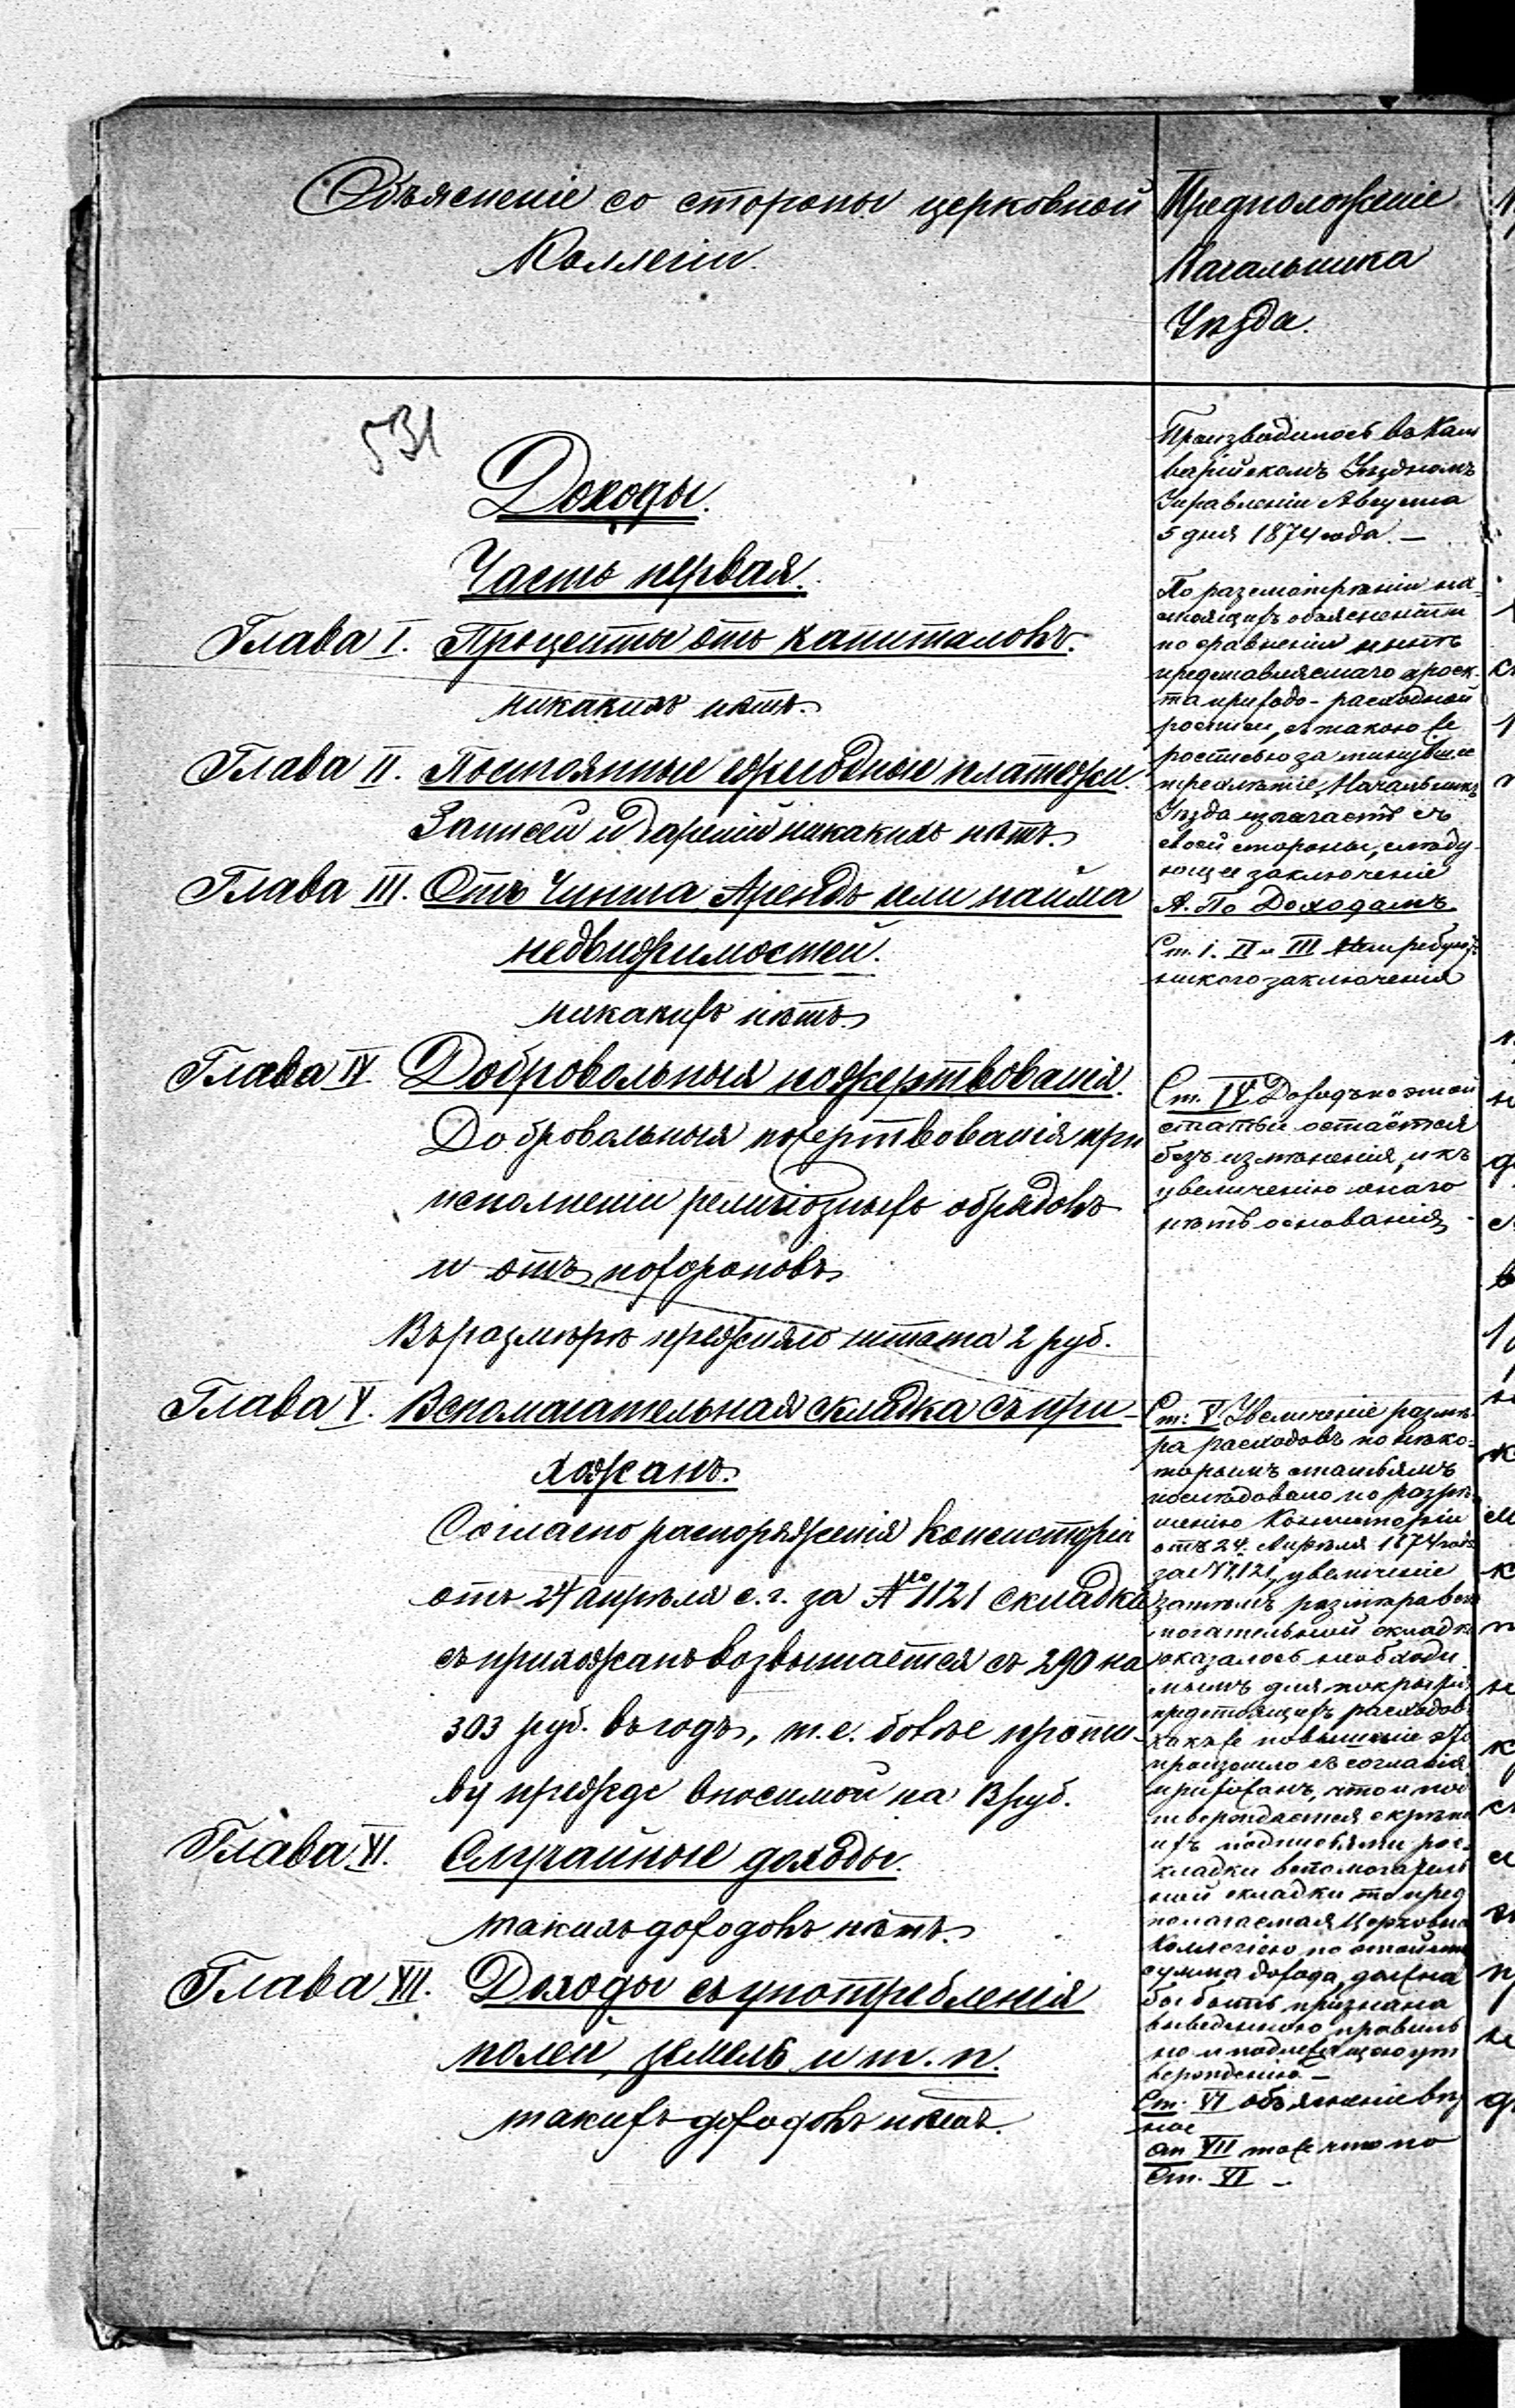 Объясненіе со стороны церковной
Коллегіи.
Предположеніе
Начальника
Уѣзда.
531
Доходы.
Часть первая.
Глава I. Проценты отъ капиталовъ.
никакихъ нѣтъ.
Глава II. Постоянные ежегодные платежи.
Записей и дареній никакихъ нѣтъ.
Глава III. Отъ Чинша, Арендъ или найма
недвижимостей.
никакихъ нѣтъ.
Глава IV. Добровольныя пожертвованія.
Добровольныя пожертвованія при
исполненіи религіозныхъ обрядовъ
и отъ похороновъ
Въ размѣрѣ прежняго штата 2 руб.
Глава V. Вспомагательная складка съ при-
хожанъ.
Согласно распоряженія Консисторіи
отъ 24 апрѣля с. г. за № 1121 складка
съ прихожанъ возвышается съ 290 на
303 руб. въ годъ, т. е. болѣе проти-
ву прежде вносимой на 13 руб.
Глава VI. Случайные доходы.
такихъ доходовъ нѣтъ.
Глава VII. Доходы съ употребленія
полей, земель и т. п.
такихъ доходовъ нѣтъ.
Производилось въ Каль
варійскомъ Уѣздномъ
Управленіи Августа
5 дня 1874 года. —
По разсмотрѣніи на-
стоящихъ объясненій
по сравненіи
представляемаго проэк-
та приходо-расходной
росписи, съ такою же
росписью за минувшее
трехлѣтіе, Начальникъ
Уѣзда излагаетъ съ
своей стороны, слѣду-
ющее заключеніе
А. По Доходамъ
Ст. I. II и III не требуютъ
никого заключенія
Ст. IV Доходъ по этой
статьи остаётся
безъ измѣненія, и къ
увеличенію онаго
нѣтъ основанія.
Ст: V. Увеличеніе размѣ-
ра расходовъ по нѣко-
торымъ статьямъ
послѣдовало по разрѣ-
шенію Консисторіи
отъ 24 Апрѣля 1874 года
за № 1121, увеличеніе
затѣмъ размѣра вспо
могательной складки
оказалось необходи
мымъ для покрытія
предстоящихъ расходовъ
какъ же повышеніе это
произошло съ согласія
прихожанъ, что и под
тверждается
ихъ подписями рос-
кладки вспомогатель
ной складки то пред
полагаемая Церковною
Коллегіею по этой
сумма дохода, должна
бы быть признана
выведенною правиль
но и подлежащею ут
вержденію —
Ст. VI объясненіе вѣр
ное
Ст VII тоже что по
Ст. VI —